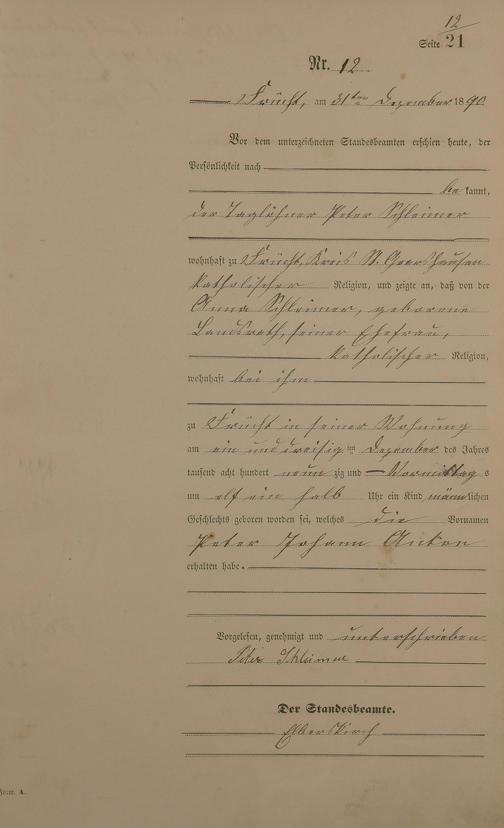 12
Seite 21
Nr. 12
Frücht, am 31ten Dezember 1890
Vor dem unterzeichneten Standesbeamten erschien heute, der
Persönlichkeit nach
be kannt,
der Taglöhner Peter Schleimer
wohnhaft zu Frücht, Kreis St. Goarshausen
katholischer Religion, und zeigte an, daß von der
Anna Schleimer, geborene
Landsrath, seiner Ehefrau,
katholischer Religion,
wohnhaft bei ihm
zu Frücht in seiner Wohnung
am ein und dreisig ten Dezember des Jahres
tausend acht hundert neun zig und Vormittag s
um elf ein halb Uhr ein Kind männlichen
Geschlechts geboren worden sei, welches die Vornamen
Peter Johann Anton
erhalten habe.
Vorgelesen, genehmigt und unterschrieben
Peter Schleimer
Der Standesbeamte.
Elberskirch
Form. A.